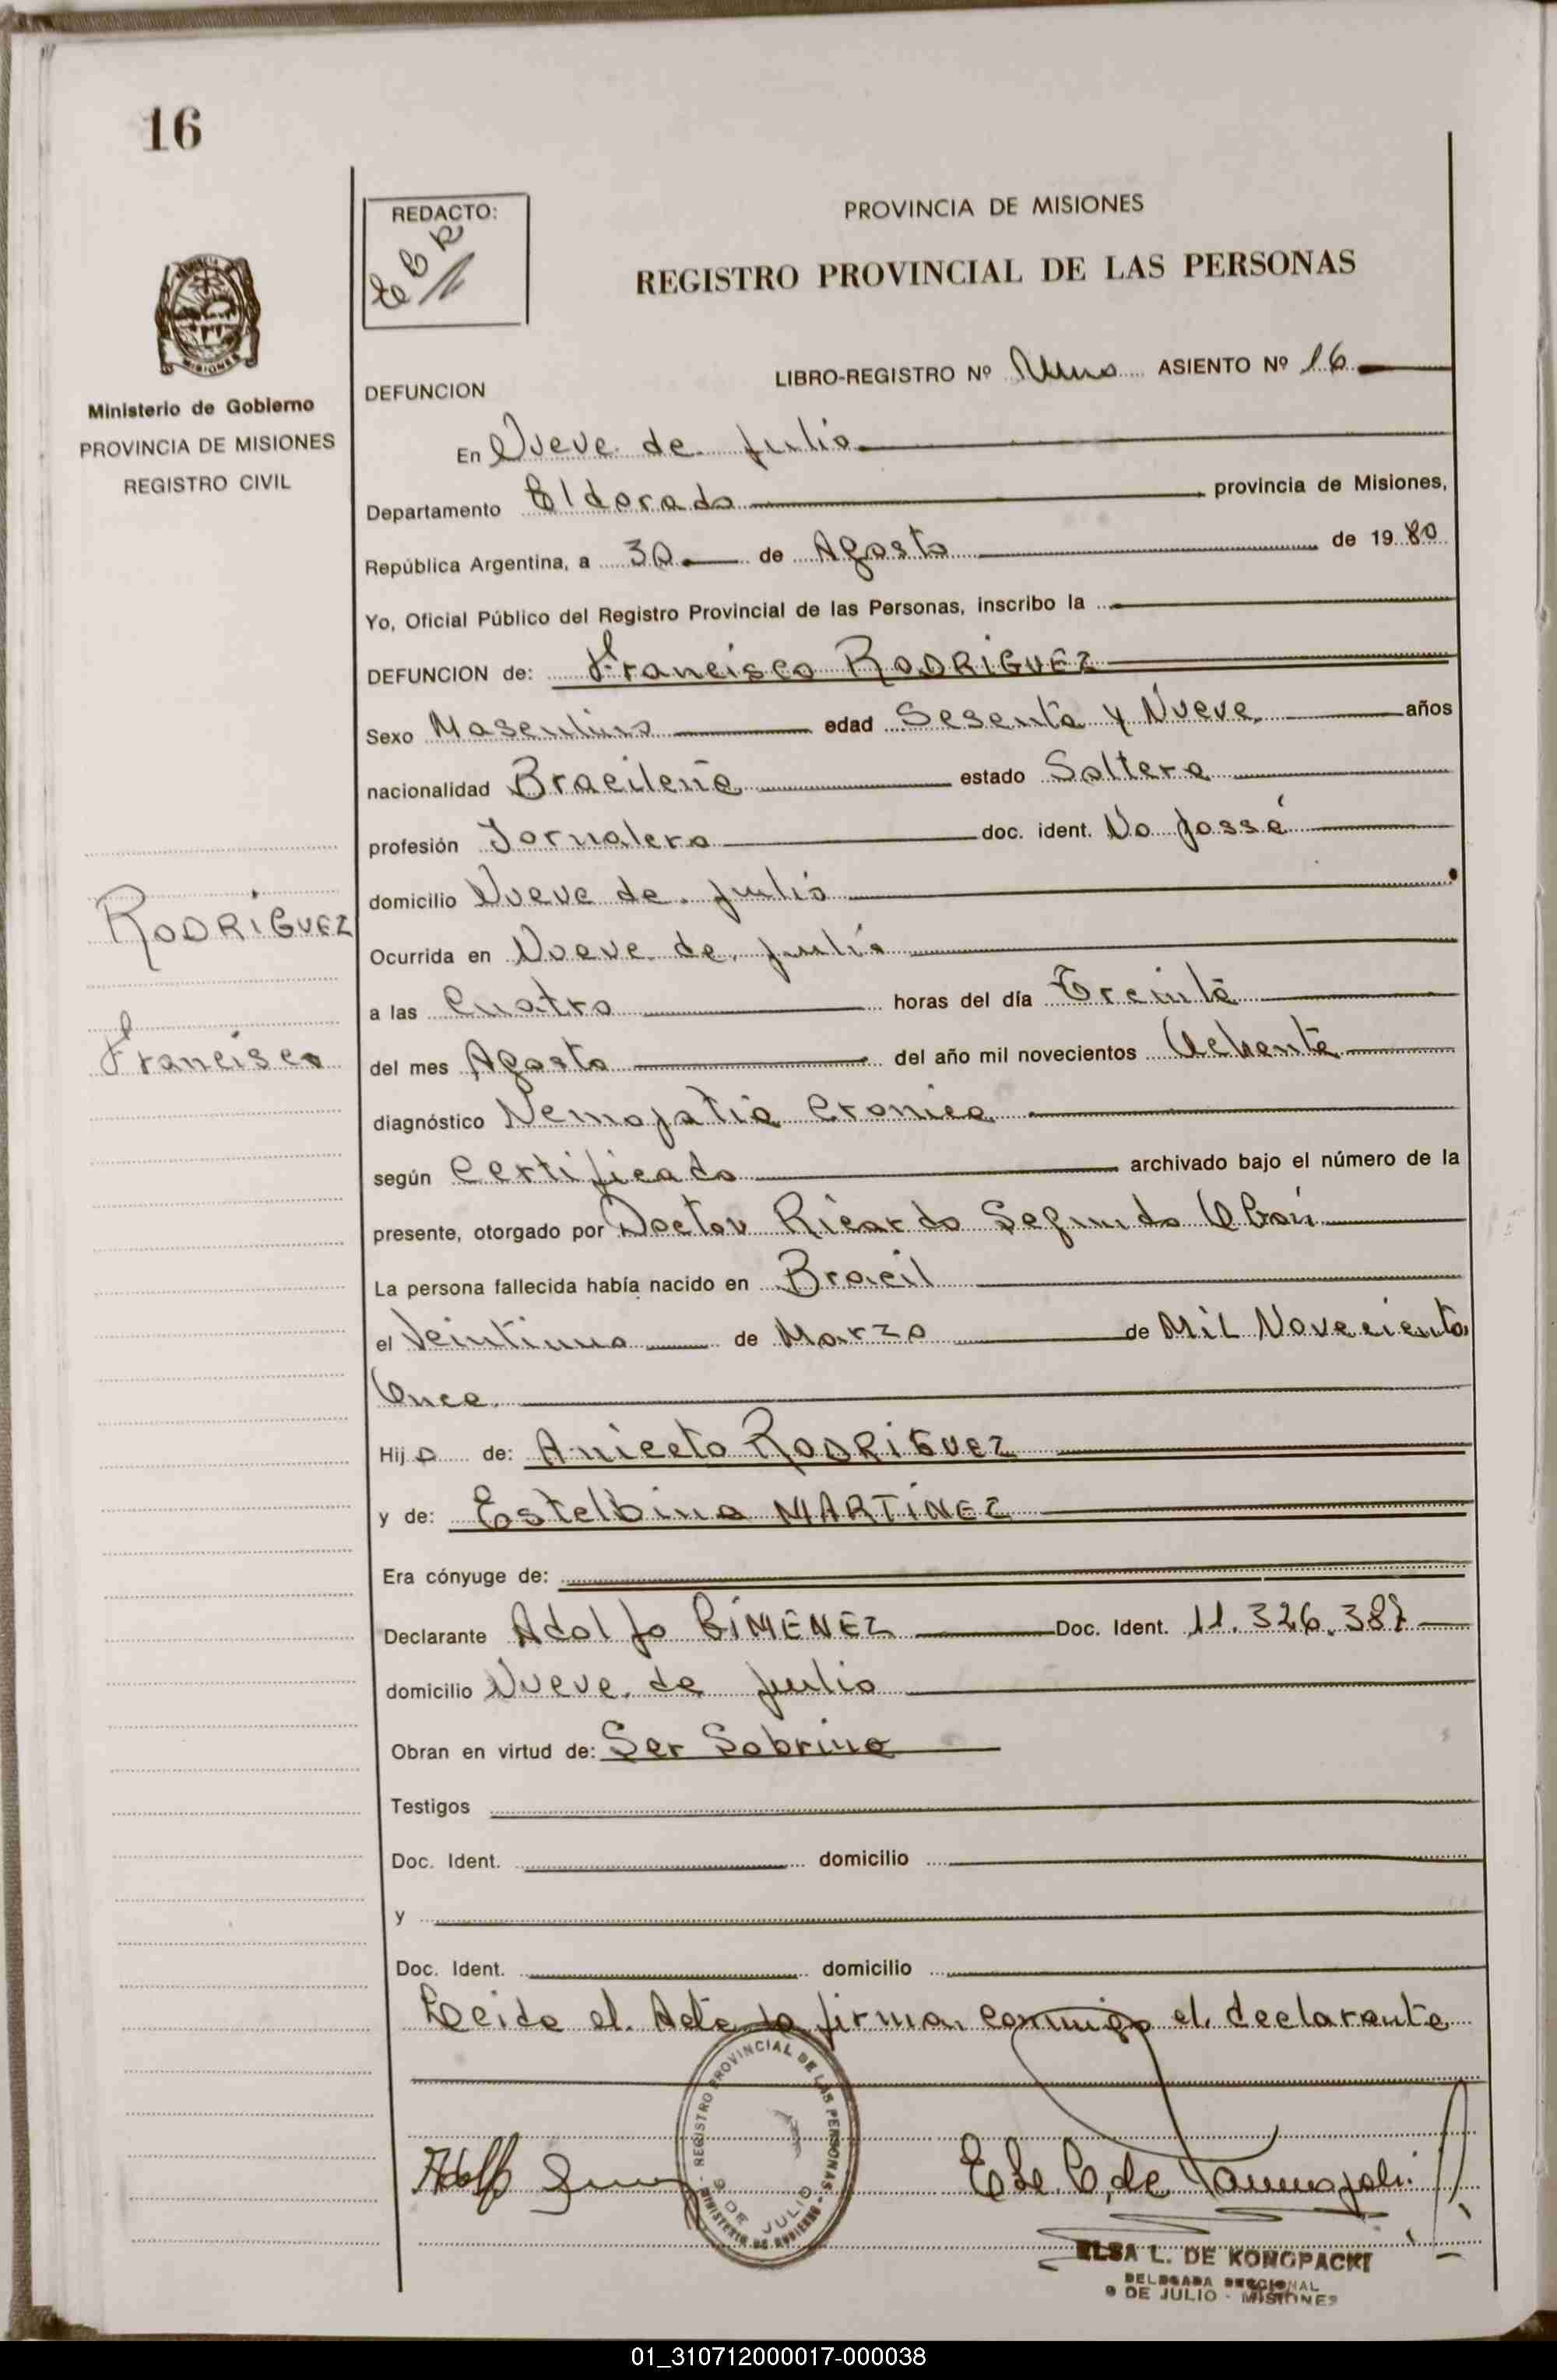 16
REDACTO:
PROVINCIA DE MISIONES
REGISTRO PROVINCIAL DE LAS PERSONAS
MISIONES
Ministerio de Gobierno
PROVINCIA DE MISIONES
REGISTRO CIVIL
DEFUNCION LIBRO-REGISTRO Nº Uno ASIENTO Nº 16
En Nueve de Julio
Departamento Eldorado provincia de Misiones,
República Argentina, a 30 de Agosto de 1980
Yo, Oficial Público del Registro Provincial de las Personas, inscribo la
DEFUNCION de: Francisco RODRIGUEZ
Sexo Masculino edad Sesenta y Nueve años
nacionalidad Bracileña estado Soltero
profesión Jornalero doc. ident. No possé
domicilio Nueve de Julio
RODRIGUEZ
Ocurrida en Nueve de Julio
a las Cuatro horas del día Treinta
Francisco
del mes Agosto del año mil novecientos Ochenta
diagnóstico Nemopatia Cronica
según Certificado archivado bajo el número de la
presente, otorgado por Doctor Ricardo Segundo
La persona fallecida había nacido en Bracil
el Veintiuno de Marzo de Mil Novecientos
Once
Hijo de: Aniceto RODRIGUEZ
y de: Estelbina MARTINEZ
Era cónyuge de:
Declarante Adolfo GIMENEZ Doc. Ident. 11.326.387
domicilio Nueve de Julio
Obran en virtud de: Ser Sobrino
Testigos
Doc. Ident. domicilio
y
Doc. Ident. domicilio
Leida el Acta la firman conmigo el declarante
REGISTRO PROVINCIAL DE LAS PERSONAS
9 DE JULIO
MINISTERIO DE GOBIERNO
Adolfo
ELSA L. DE KONOPACKI
DELEGADA SECCIONAL
9 DE JULIO - MISIONES
01_310712000017-000038